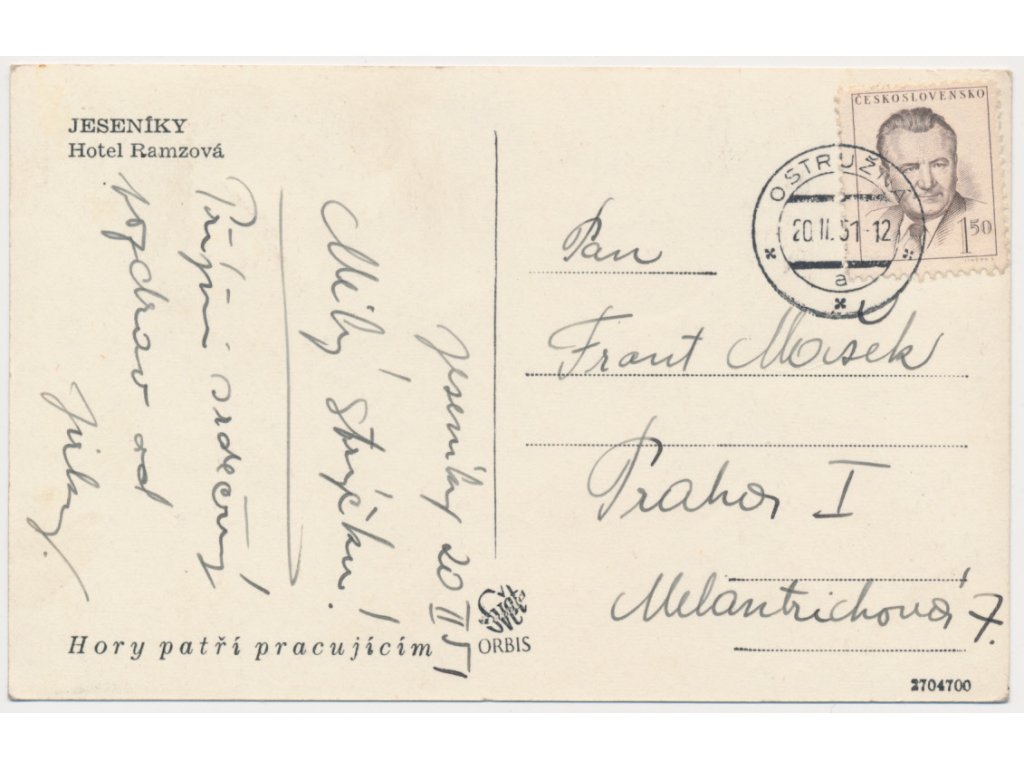 JESENÍKY
Hotel Ramzová
Jeseníky 20 II 51
Milý Strýčku!
Přijmi srdečný
pozdrav od
Hory patří pracujícím
ORBIS
ČESKOSLOVENSKO
1 50
OSTRUŽNÁ
20.II.51-12
a
Pan
Frant Mašek
Praha I
Melantrichová 7.
2704700